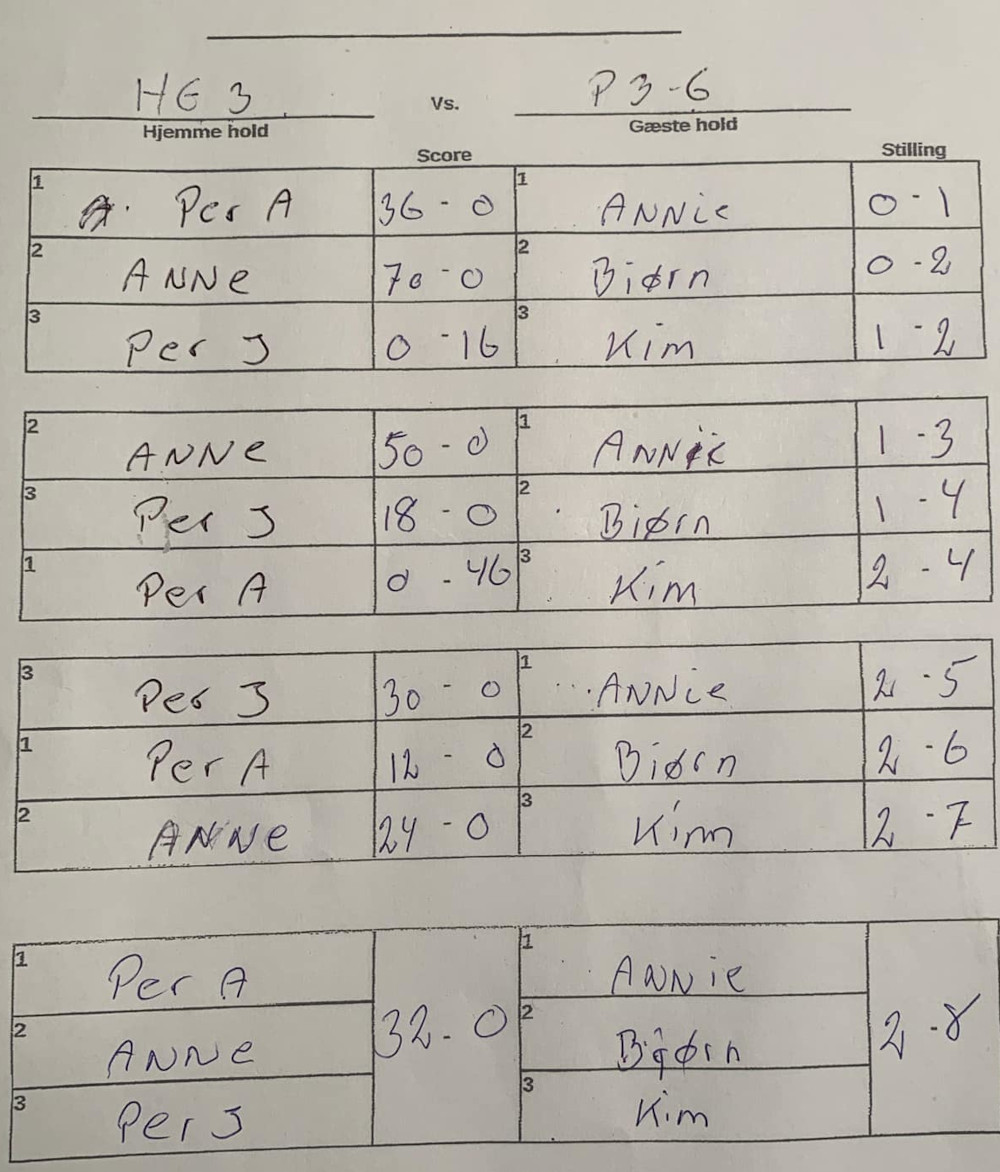 HG 3 Vs. P 3-6
Hjemme hold Gæste hold
Score Stilling
1 Per A 36 - 0 1 ANNie 0 - 1
2 ANNe 70 - 0 2 Biørn 0 - 2
3 Per J 0 - 16 3 Kim 1 - 2
2 ANNe 50 - 0 1 ANNie 1 - 3
3 Per J 18 - 0 2 Biørn 1 - 4
1 Per A 0 - 46 3 Kim 2 - 4
3 Per J 30 - 0 1 ANNie 2 - 5
1 Per A 12 - 0 2 Biørn 2 - 6
2 ANNe 24 - 0 3 Kim 2 - 7
1 Per A 1 ANNie
2 ANNe 32 - 0 2 Bjørn 2 - 8
3 Per J 3 Kim